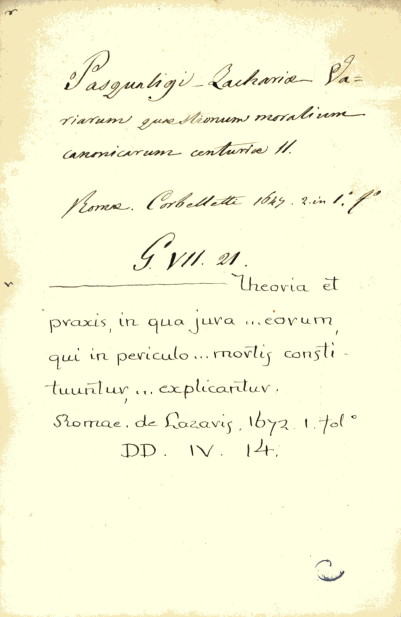 Pasqualigi Zachariæ Va=
riarum quæstionum moralium
canonicarum centuriæ II.
Romæ. Corbelletti 1647. 2. in 1. fº
G. VII. 21.
Theoria et
praxis, in qua jura ... eorum,
qui in periculo ... mortis consti-
tuuntur, ... explicantur.
Romae. de Lazaris. 1672. 1. folº
DD. IV. 14.